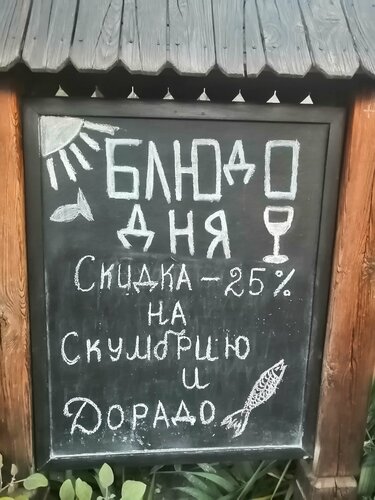 БЛЮДО
ДНЯ
СКИДКА – 25%
НА
СКУМБРИЮ
И
ДОРАДО